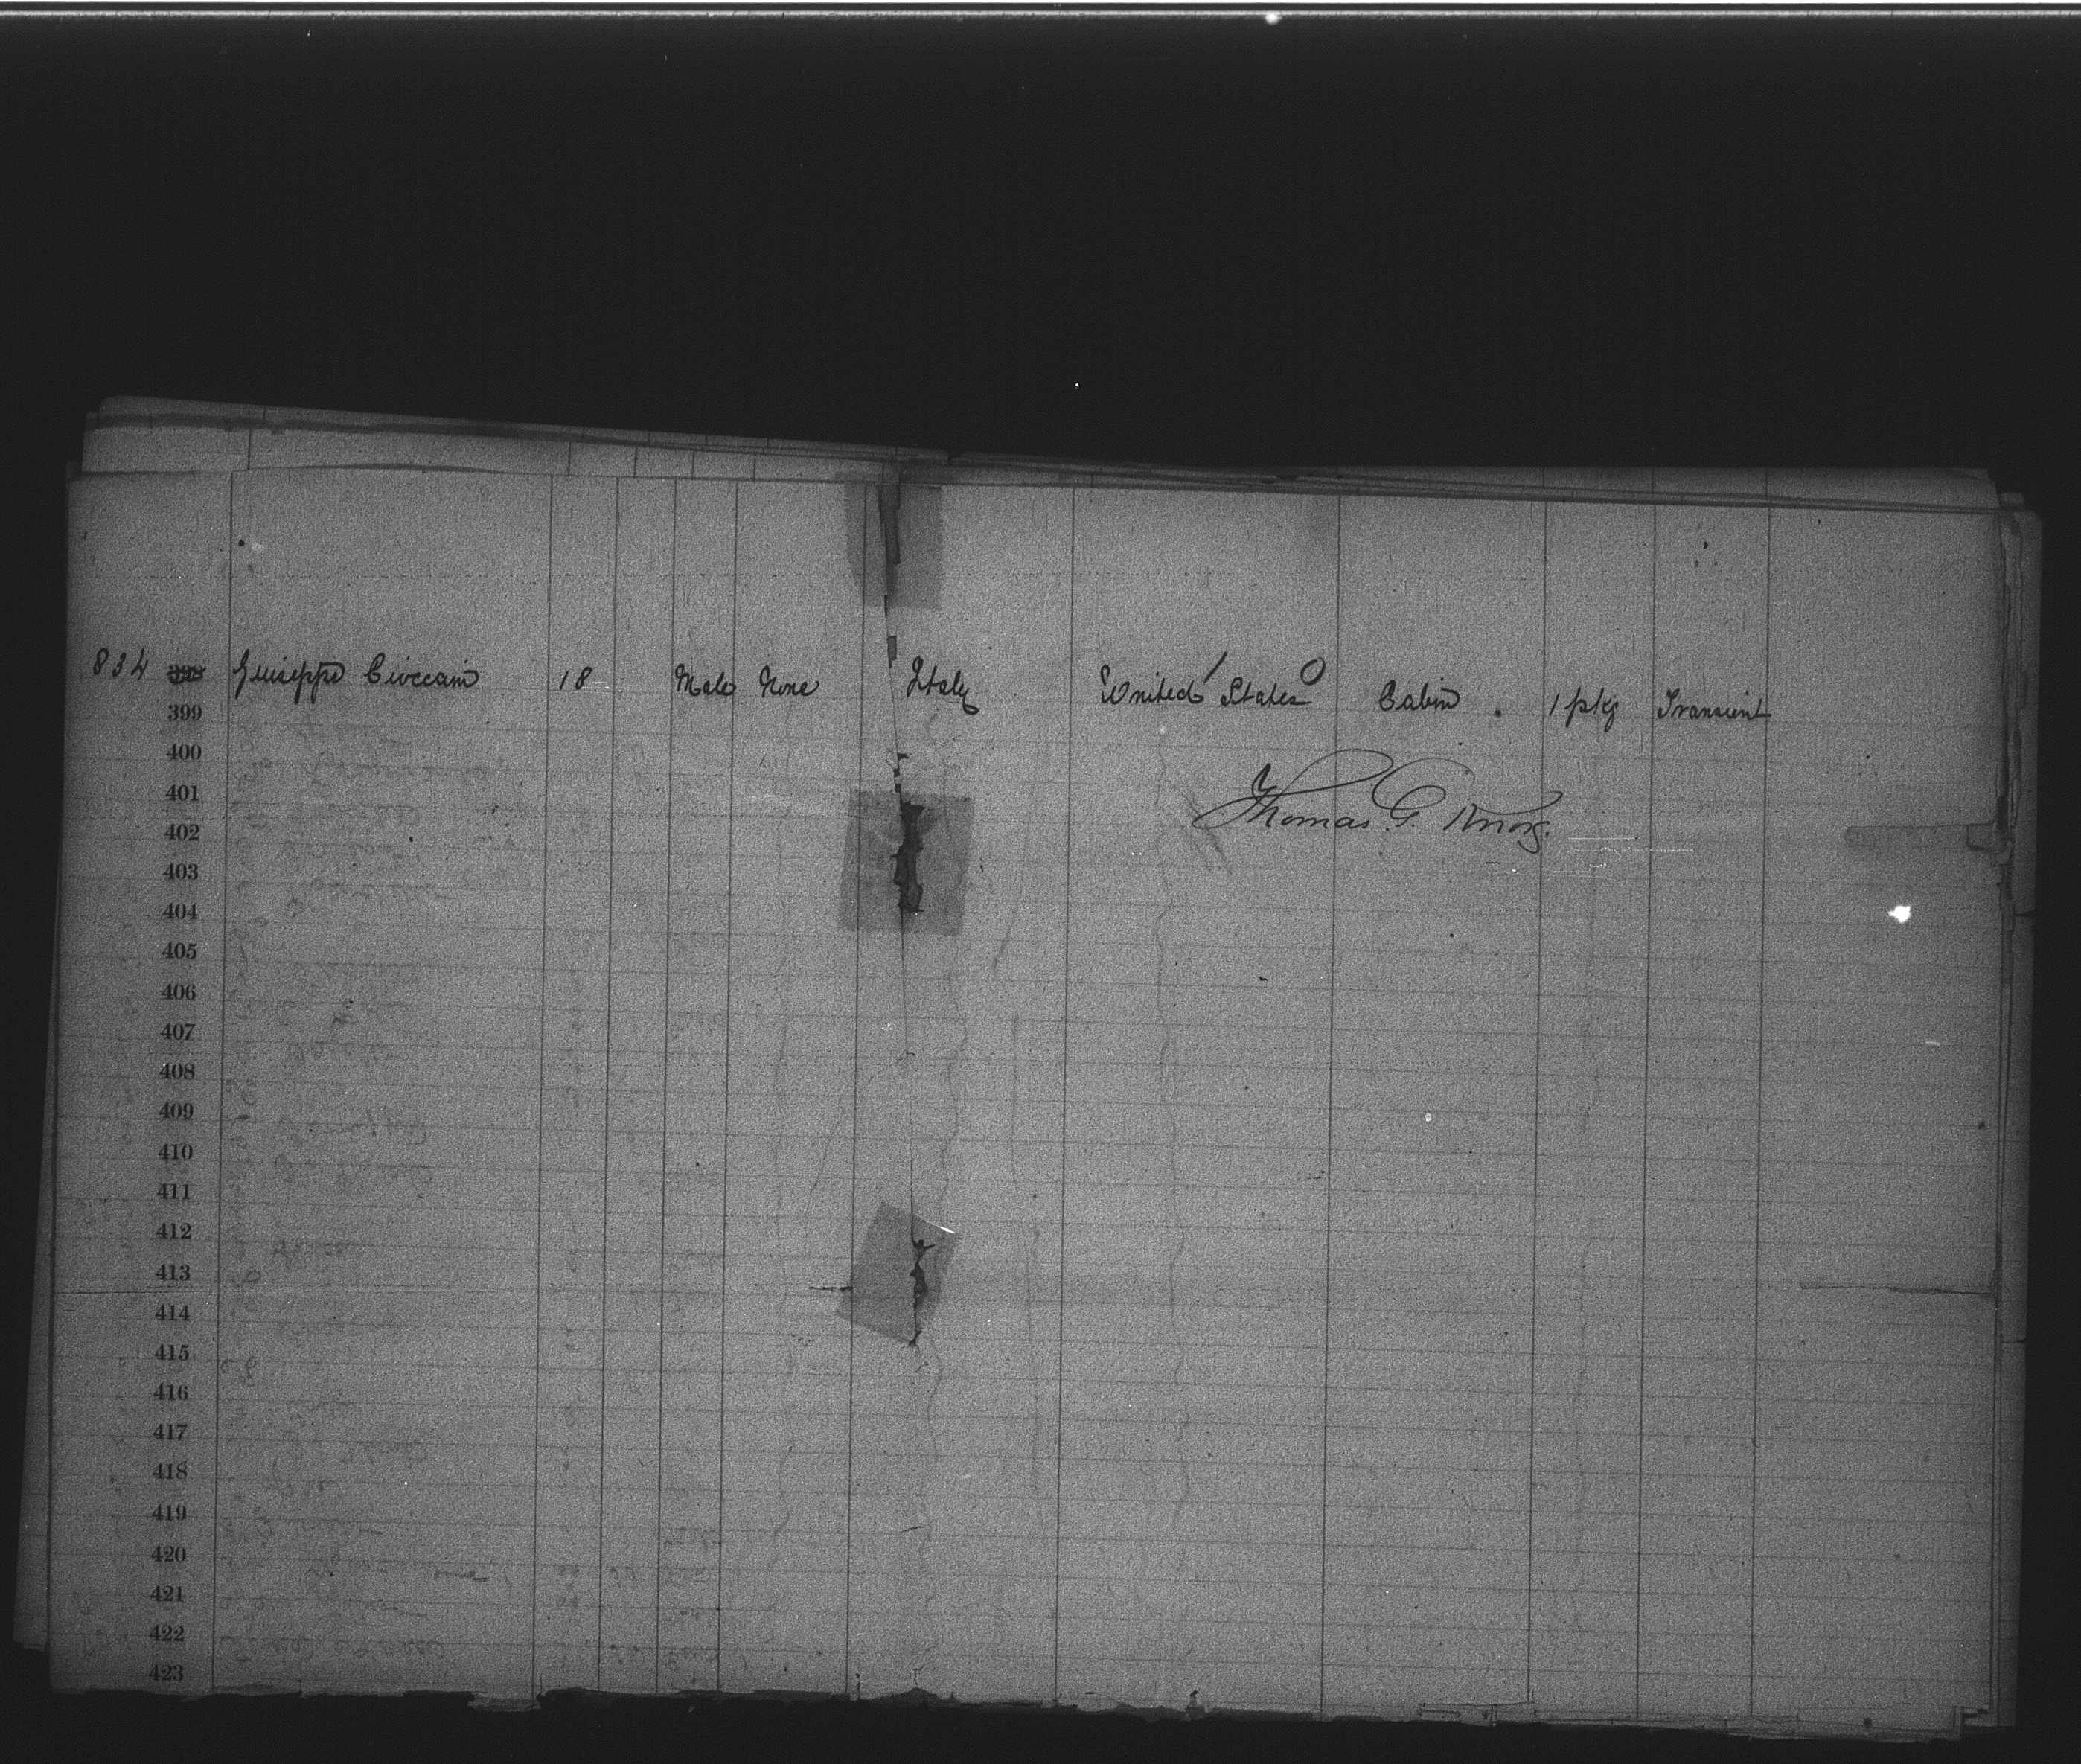 834 398 Guiseppe Cioccain 18 Male None Italy United States Cabin . 1 pkg Transient
399
400
401
Thomas. G. Knox.
402
403
404
405
406
407
408
409
410
411
412
413
414
415
416
417
418
419
420
421
422
423